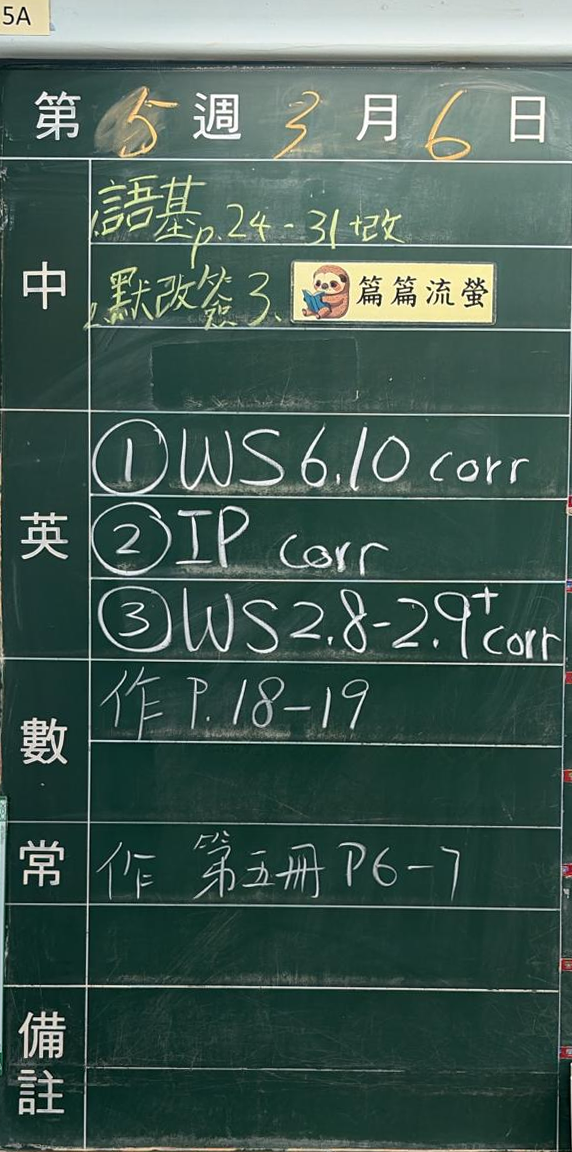 5A
第5週3月6日
中
1.語基p.24-31+改
2.默改簽3、篇篇流螢
英
①WS6.10 corr
②IP corr
③WS2.8-2.9+corr
數
作 P.18-19
常
作 第五冊 P6-7
備註